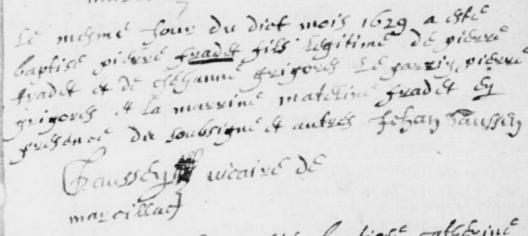 Le mesme Jour du dict mois 1629 a este
baptise pierre fradet fils legitime de pierre
fradet et de Jehanne grigores le parrin pierre
grigores et la marrine mateline fradet en
presence du soubsigne et autres Jehan
vicaire de
marcillac